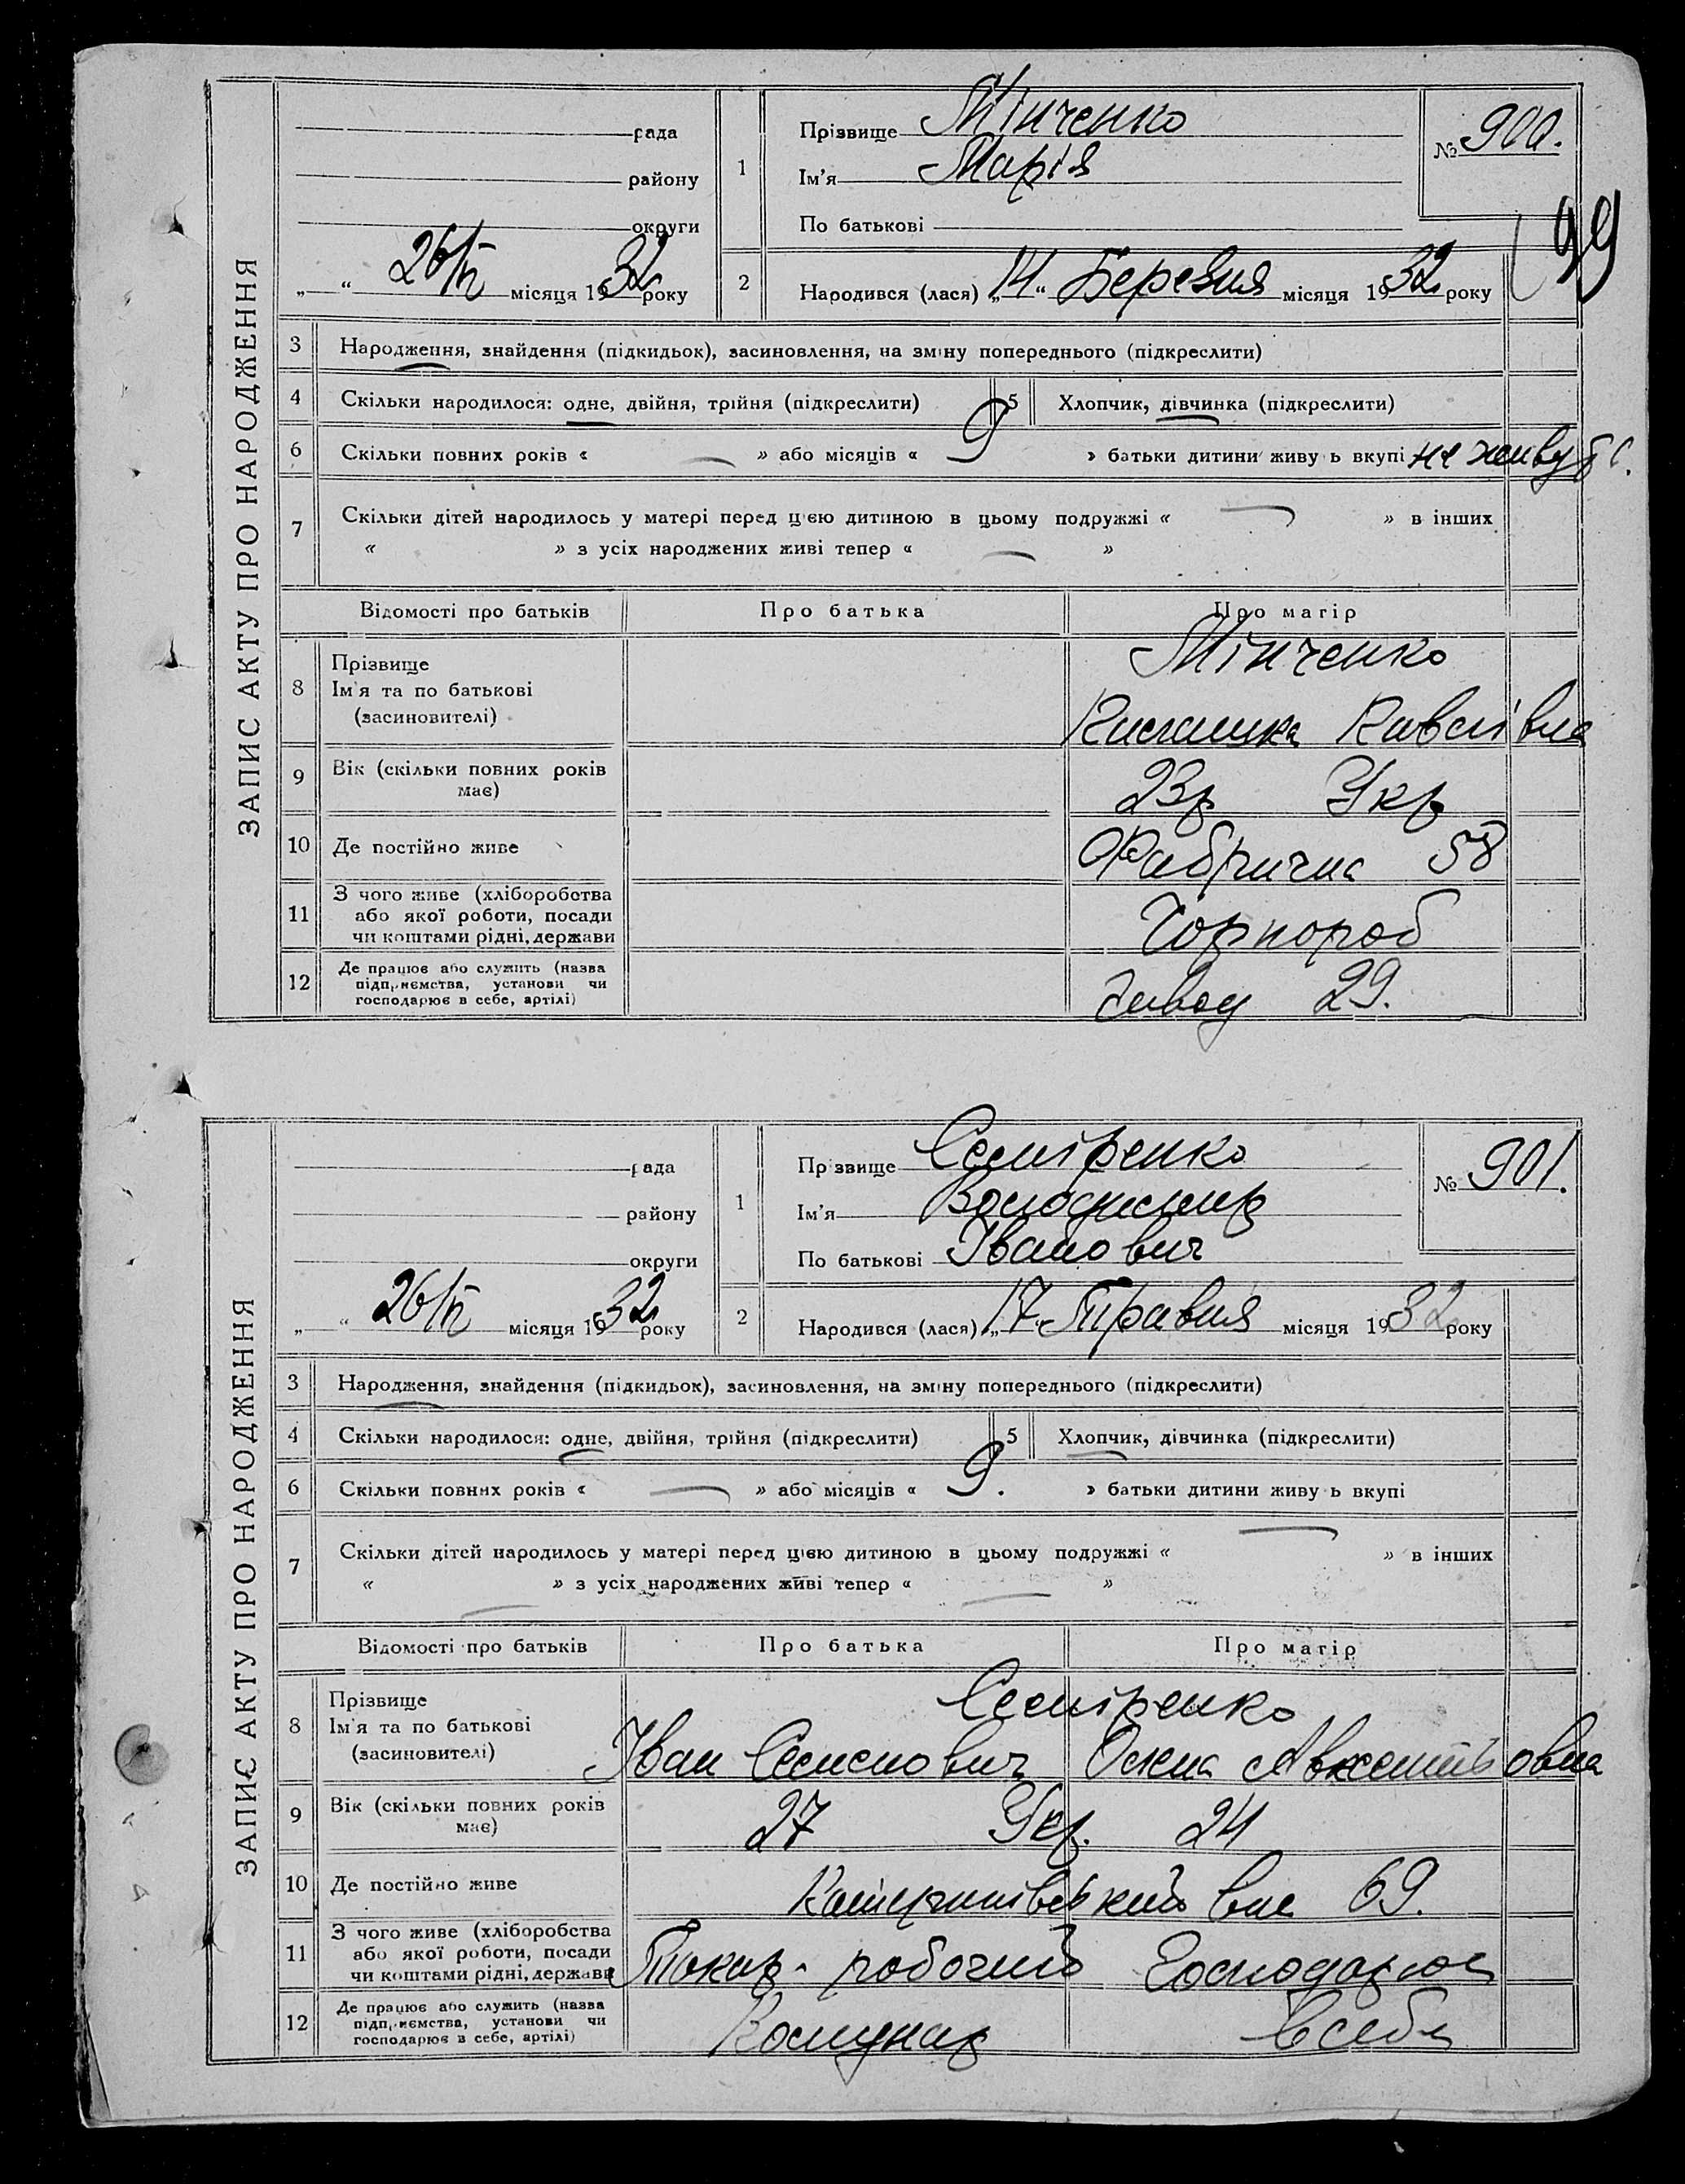 ЗАПИС АКТУ ПРО НАРОДЖЕННЯ
рада
району
округи
„ “ 26/V місяця 1932 року
1
Прізвище Мінченко
Ім'я Марія
По батькові
№ 900.
99
2
Народився (лася) „14“ Березня місяця 1932 року
3 Народження, знайдення (підкидьок), засиновлення, на зміну попереднього (підкреслити)
4 Скільки народилося: одне, двійня, трійня (підкреслити) 5 Хлопчик, дівчинка (підкреслити)
6 Скільки повних років « — » або місяців « 9 » батьки дитини живу ь вкупі не живуть.
7 Скільки дітей народилось у матері перед цією дитиною в цьому подружжі « — » в інших
« » з усіх народжених живі тепер « — »
Відомості про батьків Про батька Про матір
8 Прізвище
Ім'я та по батькові
(засиновителі)
Мінченко
9 Вік (скільки повних років має)
23 р Укр
10 Де постійно живе
Фабрична 58
11 З чого живе (хліборобства
або якої роботи, посади
чи коштами рідні, держави
Чорнороб
12 Де працює або служить (назва
підприємства, установи чи
господарює в себе, артілі)
Завод 29.
ЗАПИС АКТУ ПРО НАРОДЖЕННЯ
рада
району
округи
„ “ 26/V місяця 1932 року
1
Пр звище Семіренко
Ім'я Володимир
По батькові Іванович
№ 901.
2
Народився (лася) „17“ Травня місяця 1932 року
3 Народження, знайдення (підкидьок), засиновлення, на зміну попереднього (підкреслити)
4 Скільки народилося: одне, двійня, трійня (підкреслити) 5 Хлопчик, дівчинка (підкреслити)
6 Скільки повних років « — » або місяців « 9. » батьки дитини живу ь вкупі
7 Скільки дітей народилось у матері перед цією дитиною в цьому подружжі « — » в інших
« — » з усіх народжених живі тепер « — »
Відомості про батьків Про батька Про матір
8 Прізвище
Ім'я та по батькові
(засиновителі)
Семіренко
Іван Семенович Оксна Авксентьовна
9 Вік (скільки повних років має)
27 Укр. 24
10 Де постійно живе
Катеринівський вис 69.
11 З чого живе (хліборобства
або якої роботи, посади
чи коштами рідні, держави
Токар. робочий Господарює
12 Де працює або служить (назва
підприємства, установи чи
господарює в себе, артілі)
Комунар В себе